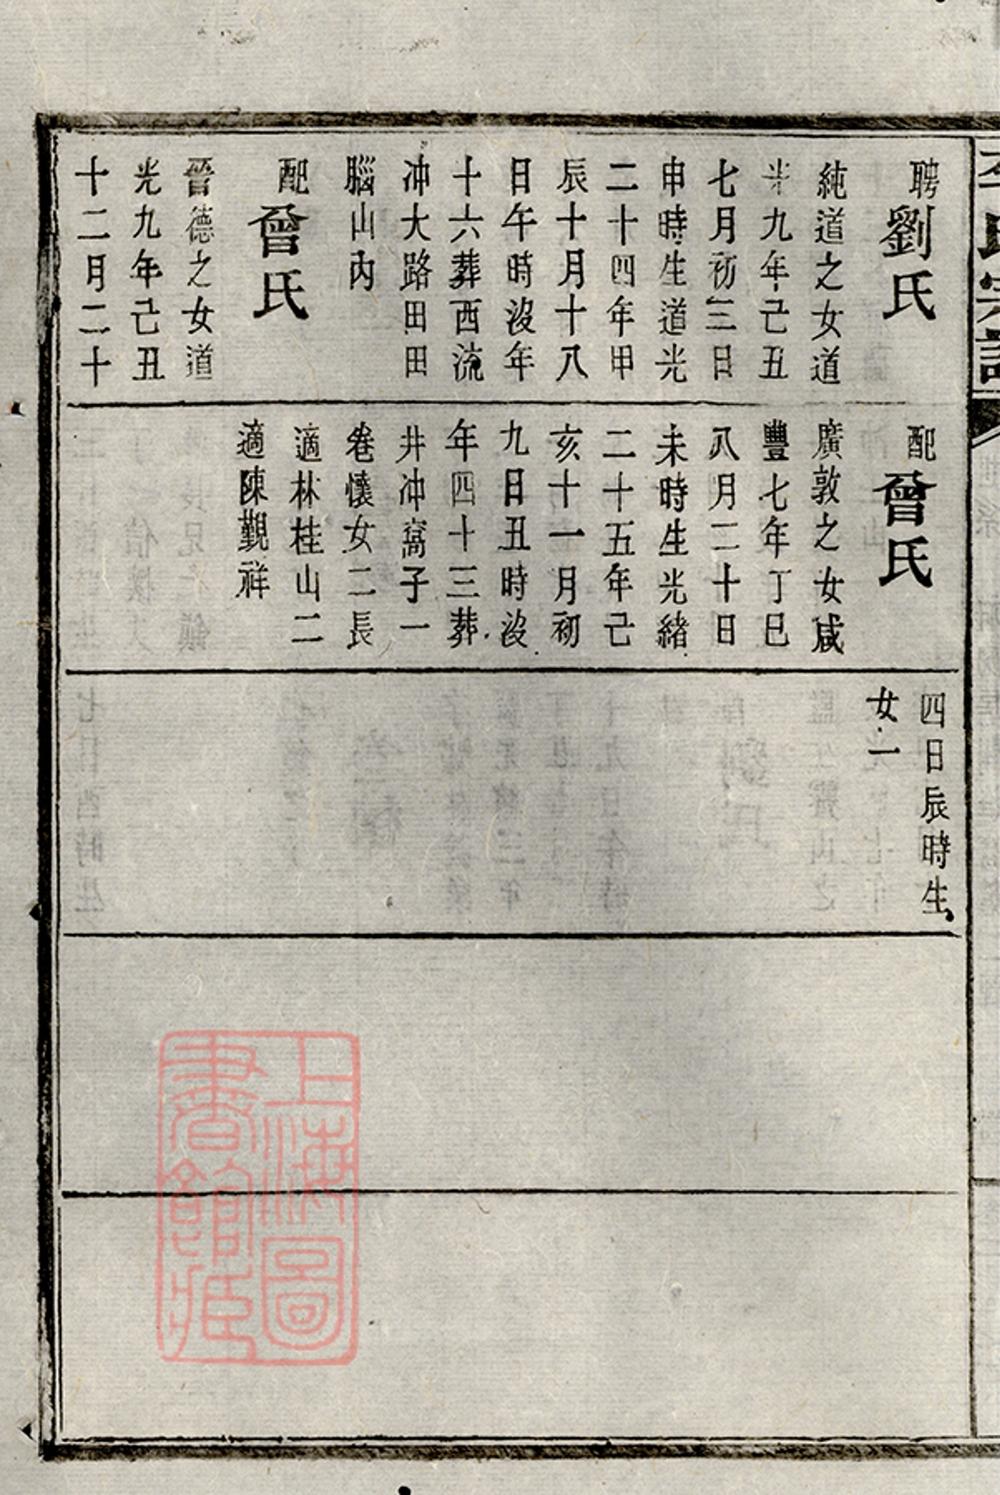 聘劉氏
純道之女道
光九年己丑
七月初三日
申時生道光
二十四年甲
辰十月十八
日午時沒年
十六葬西流
冲大路田田
腦山內
配曾氏
晉德之女道
光九年己丑
十二月二十
配曾氏
廣敦之女咸
豐七年丁巳
八月二十日
未時生光緒
二十五年己
亥十一月初
九日丑時沒
年四十三葬
井冲窩子一
卷懷女二長
適林桂山二
適陳覲祥
四日辰時生
女一
上海圖
書館藏